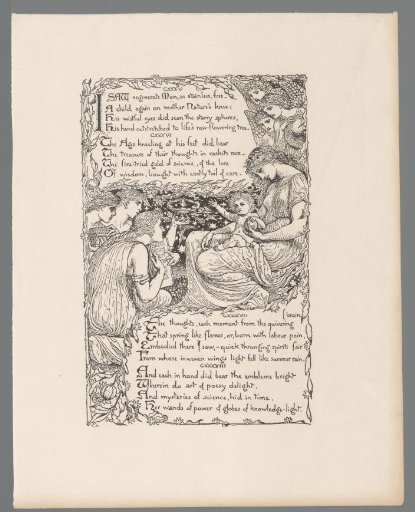 CCXXV
I SAW regenerate Man, as stainless, free
A child again on mother Nature's knee:
His wistful eyes did scan the starry spheres,
His hand outstretched to life's new flowering tree.
CCXXVI
The Ages kneeling at his feet did bear
The treasure of their thoughts in caskets rare
The fire-tried gold of science, of the lore
Of wisdom, bought with costly toil of care.
CCXXVII
The thoughts, each moment from the quivering
(brain,
That spring like flames, or, born with labour pain,
Embodied there I saw,- quick thronging spirits fair
From whose inwoven wings light fell like summer rain.
CCXXVIII
And each in hand did bear the emblems bright
Wherein do art & poesy delight,
And mysteries of science, hid in time,
Her wands of power & globes of knowledge-light.